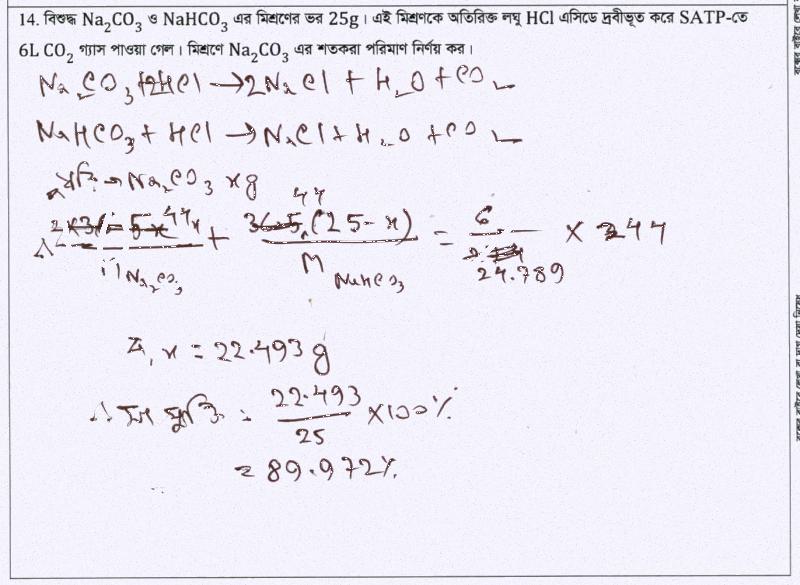 14. বিশুদ্ধ Na₂CO₃ ও NaHCO₃ এর মিশ্রণের ভর 25g। এই মিশ্রণকে অতিরিক্ত লঘু HCl এসিডে দ্রবীভূত করে SATP-তে
6L CO₂ গ্যাস পাওয়া গেল। মিশ্রণে Na₂CO₃ এর শতকরা পরিমাণ নির্ণয় কর।
Na₂CO₃+2HCl → 2NaCl + H₂O + CO₂
NaHCO₃ + HCl → NaCl + H₂O + CO₂
ধরি → Na₂CO₃ x g
44x / M Na₂CO₃ + 44(25-x) / M NaHCO₃ = 6 / 24.789 × 44
বা, x = 22.493 g
∴ = 22.493 / 25 ×100%
= 89.972%